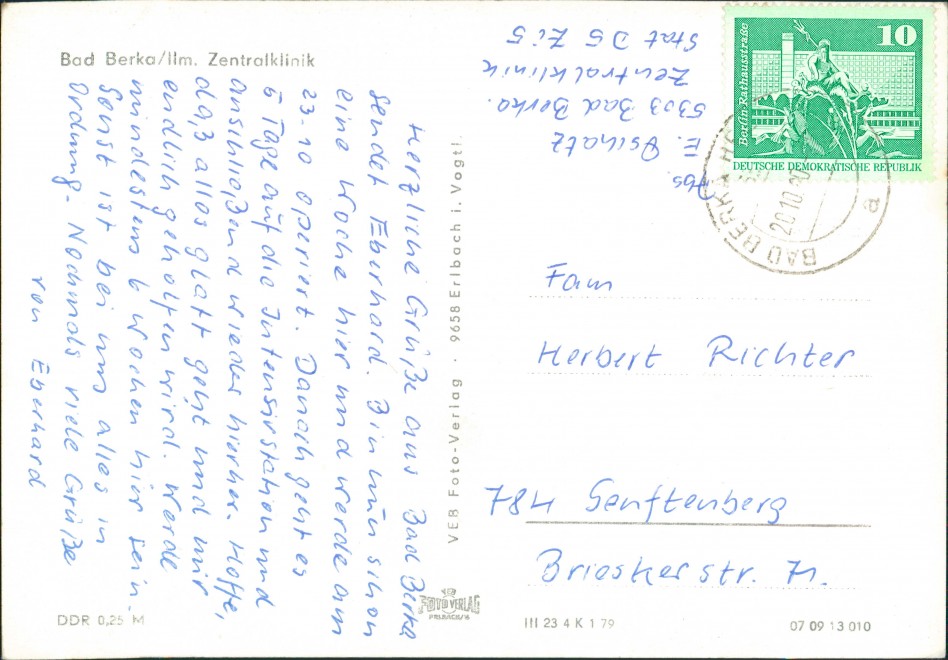 Bad Berka/Ilm. Zentralklinik
Herzliche Grüße aus Bad Berka
sendet Eberhard. Bin nun schon
eine Woche hier und werde am
23.10 operiert. Danach geht es
5 Tage auf die Intensivstation und
anschließend wieder hierher. Hoffe,
daß alles glatt geht und mir
endlich geholfen wird. Werde
mindestens 6 Wochen hier sein.
Sonst ist bei uns alles in
Ordnung. Nochmals viele Grüße
von Eberhard
VEB Foto-Verlag · 9658 Erlbach i. Vogtl.
Abs.
E. Oschatz
5303 Bad Berka.
Zentralklinik
Stat D5 Zi 5
10
Berlin·Rathausstraße
DEUTSCHE DEMOKRATISCHE REPUBLIK
BAD BERKA
20.10.80
a
Fam
Herbert Richter
784 Senftenberg
Briesker str. 71.
DDR 0,25 M
FOTO VERLAG
III 23 4 K 1 79
07 09 13 010